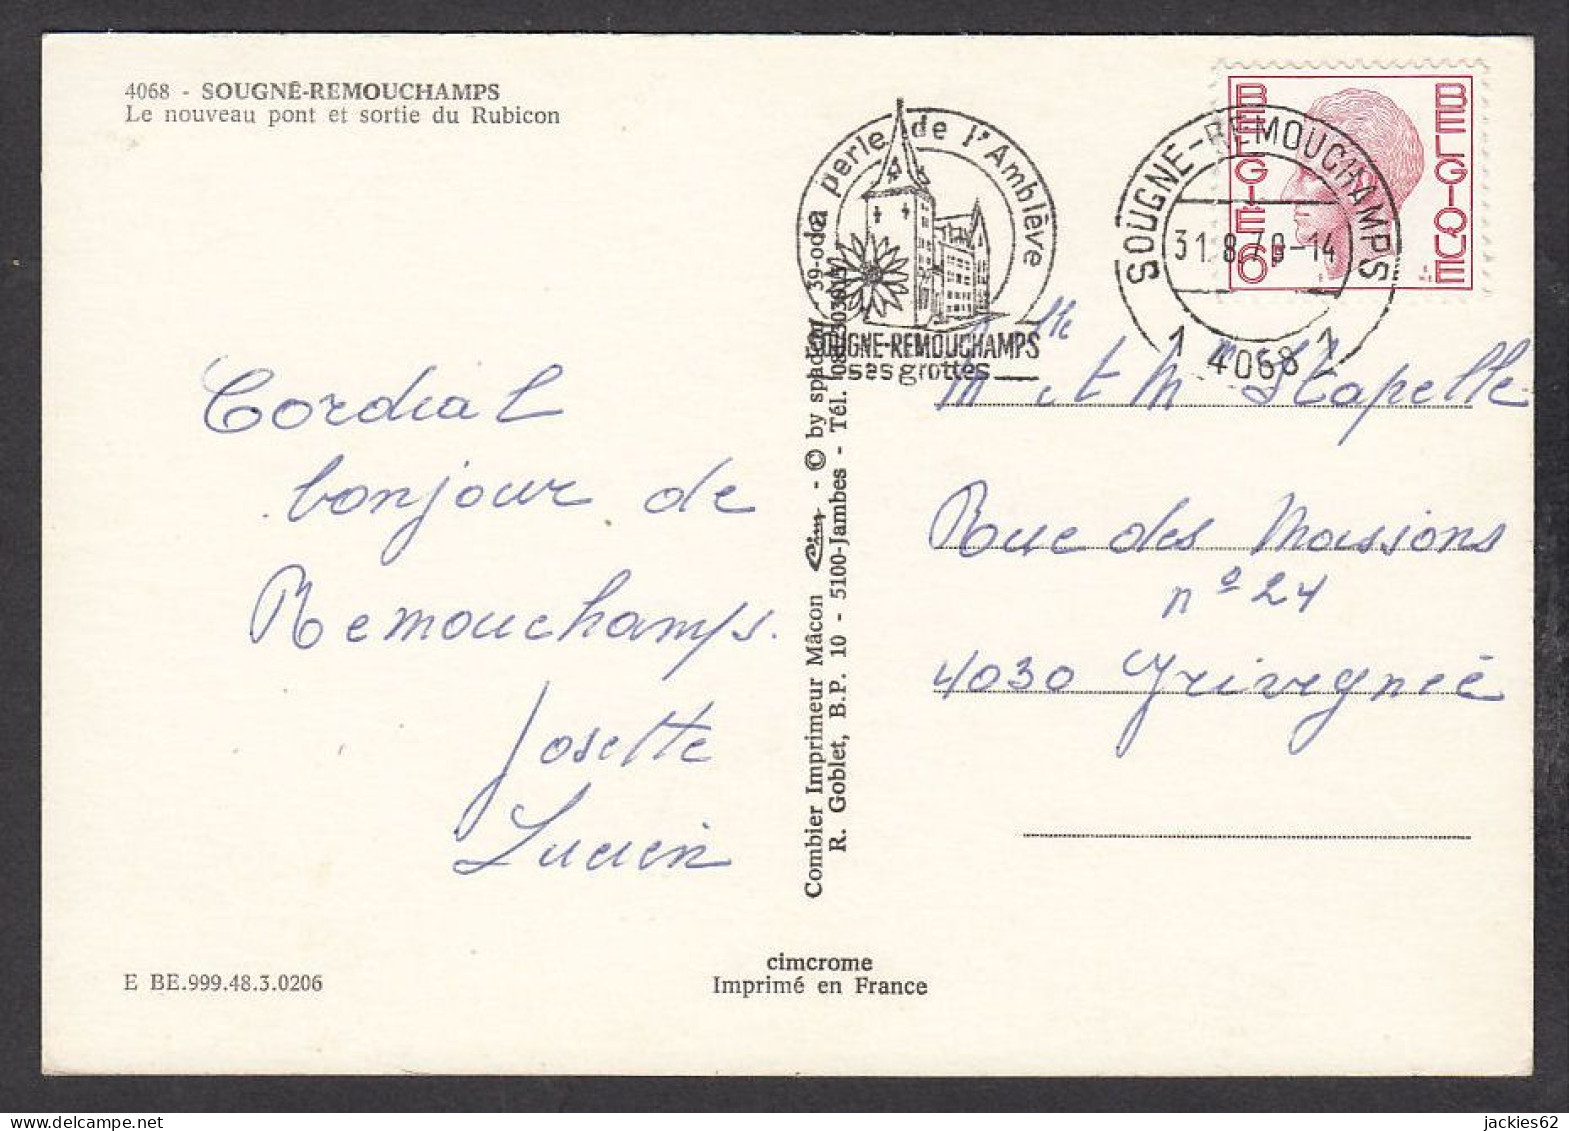 4068 - SOUGNÉ-REMOUCHAMPS
Le nouveau pont et sortie du Rubicon
la perle de l'Amblève
SOUGNE-REMOUCHAMPS
ses grottes
SOUGNE-REMOUCHAMPS
31.8.79-14
1 4068 1
BELGIE 6F
BELGIQUE
Cordial
bonjour de
Remouchamps.
Josette
Lucien
Combier Imprimeur Mâcon Cim - © by spadem
R. Goblet, B.P. 10 - 5100-Jambes - Tél.
Mlle et Mr Stapelle
Rue des Maisons
n° 24
4030 Grivegnée
E BE.999.48.3.0206
cimcrome
Imprimé en France
jackies62